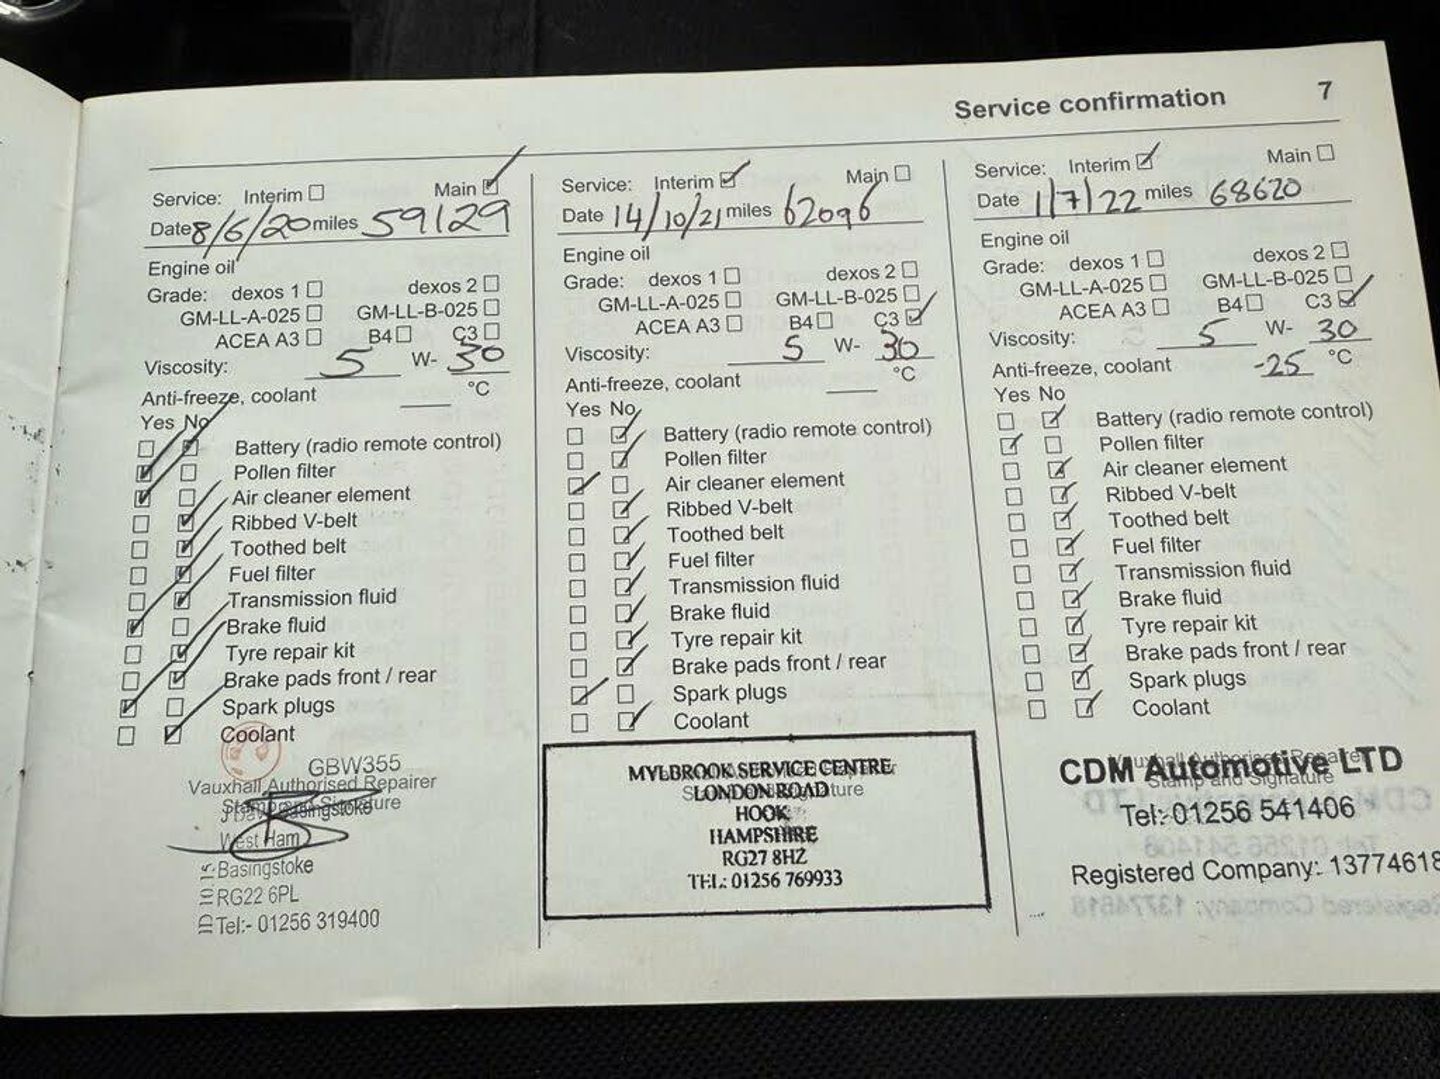 Service confirmation 7
Service: Interim ☐ Main ☑
Date 8/6/20 miles 59129
Engine oil
Grade: dexos 1 ☐ dexos 2 ☐
GM-LL-A-025 ☐ GM-LL-B-025 ☐
ACEA A3 ☐ B4 ☐ C3 ☐
Viscosity: 5 W- 30
Anti-freeze, coolant ____ °C
Yes No
☐ ☑ Battery (radio remote control)
☑ ☐ Pollen filter
☑ ☐ Air cleaner element
☐ ☑ Ribbed V-belt
☐ ☑ Toothed belt
☐ ☑ Fuel filter
☐ ☑ Transmission fluid
☑ ☐ Brake fluid
☐ ☑ Tyre repair kit
☐ ☑ Brake pads front / rear
☑ ☐ Spark plugs
☐ ☑ Coolant
GBW355
Vauxhall Authorised Repairer
Stamp and Signature
Basingstoke
West Ham
Basingstoke
RG22 6PL
Tel:- 01256 319400
Service: Interim ☑ Main ☐
Date 14/10/21 miles 62096
Engine oil
Grade: dexos 1 ☐ dexos 2 ☐
GM-LL-A-025 ☐ GM-LL-B-025 ☐
ACEA A3 ☐ B4 ☐ C3 ☑
Viscosity: 5 W- 30
Anti-freeze, coolant ____ °C
Yes No
☐ ☑ Battery (radio remote control)
☐ ☑ Pollen filter
☑ ☐ Air cleaner element
☐ ☑ Ribbed V-belt
☐ ☑ Toothed belt
☐ ☑ Fuel filter
☐ ☑ Transmission fluid
☐ ☑ Brake fluid
☐ ☑ Tyre repair kit
☐ ☑ Brake pads front / rear
☑ ☐ Spark plugs
☐ ☑ Coolant
MYLBROOK SERVICE CENTRE
LONDON ROAD
HOOK
HAMPSHIRE
RG27 8HZ
TEL: 01256 769933
Service: Interim ☑ Main ☐
Date 1/7/22 miles 68620
Engine oil
Grade: dexos 1 ☐ dexos 2 ☐
GM-LL-A-025 ☐ GM-LL-B-025 ☐
ACEA A3 ☐ B4 ☐ C3 ☑
Viscosity: 5 W- 30
Anti-freeze, coolant -25 °C
Yes No
☐ ☑ Battery (radio remote control)
☑ ☐ Pollen filter
☐ ☑ Air cleaner element
☐ ☑ Ribbed V-belt
☐ ☑ Toothed belt
☐ ☑ Fuel filter
☐ ☑ Transmission fluid
☐ ☑ Brake fluid
☐ ☑ Tyre repair kit
☐ ☑ Brake pads front / rear
☐ ☑ Spark plugs
☐ ☑ Coolant
Vauxhall Authorised Repairer
CDM Automotive LTD
Stamp and Signature
Tel: 01256 541406
Registered Company: 13774618